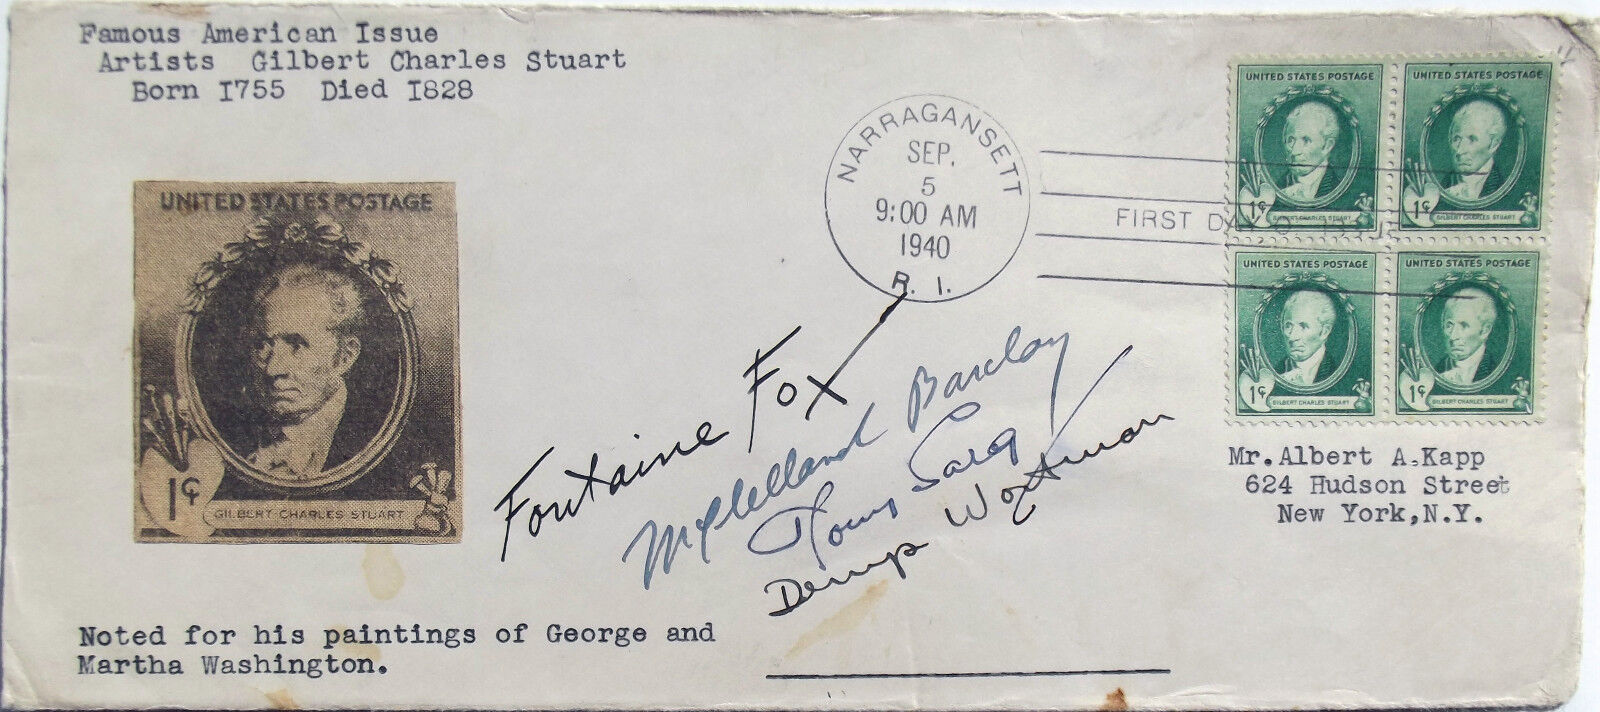 Famous American Issue
Artists Gilbert Charles Stuart
Born I755 Died I828
UNITED STATES POSTAGE
1¢
GILBERT CHARLES STUART
Noted for his paintings of George and
Martha Washington.
NARRAGANSETT
SEP.
5
9:00 AM
1940
R. I.
FIRST DAY
UNITED STATES POSTAGE
1¢
GILBERT CHARLES STUART
UNITED STATES POSTAGE
1¢
GILBERT CHARLES STUART
UNITED STATES POSTAGE
1¢
GILBERT CHARLES STUART
UNITED STATES POSTAGE
1¢
GILBERT CHARLES STUART
Fontaine Fox
McClelland Barclay
Tony Sarg
Denys Wortman
Mr.Albert A.Kapp
624 Hudson Street
New York,N.Y.